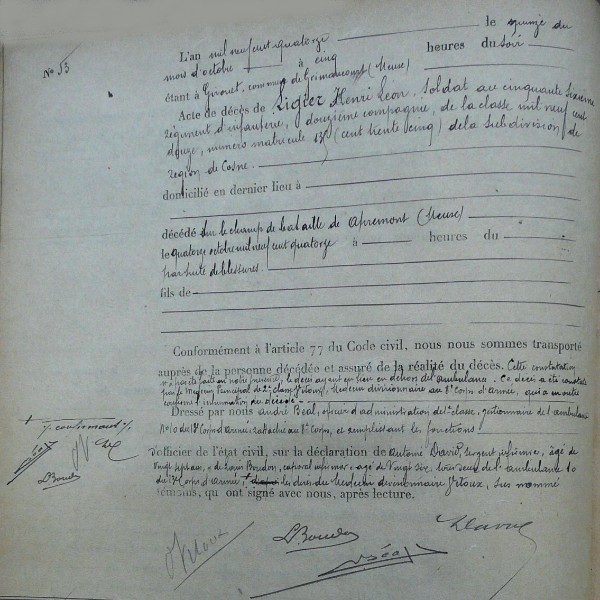 L'an mil neuf cent quatorze le quinze du
No 53
mois d'octobre à cinq heures du soir
étant à Girouet, commune de Grimaucourt (Meuse)
Acte de décès de Ligier Henri Léon. Soldat au cinquante sixième
régiment d'infanterie, douzième compagnie, de la classe mil neuf cent
douze, numéro matricule 135 (cent trente cinq) de la subdivision de
région de Cosne.
domicilié en dernier lieu à
décédé sur le champ de bataille de Apremont (Meuse)
le quatorze octobre mil neuf cent quatorze à heures du
par suite de blessures.
fils de
Conformément à l'article 77 du Code civil, nous nous sommes transporté
auprès de la personne décédée et assuré de la réalité du décès. Cette constatation
n'a pas été faite en notre présence, le décès ayant eu lieu en dehors de l'ambulance. Ce décès a été constaté
par le Médecin Principal de 2e classe Vitoux, Médecin divisionnaire au 8e Corps d'Armée, qui a
confirmé l'inhumation du décédé.
Dressé par nous André Béal, officier d'administration de classe, gestionnaire de l'ambulance
No 10 du Corps d'Armée rattachée au 8e Corps, et remplissant les fonctions
d'officier de l'état civil, sur la déclaration de Antoine sergent infirmier, âgé de
vingt sept ans, et de Louis Boudon, caporal infirmier, âgé de vingt six, tous deux de l'ambulance 10
du Corps d'Armée, + les dires du Médecin divisionnaire Vitoux, sus nommé
témoins, qui ont signé avec nous, après lecture.
+ conformant
Vitoux
L Boudon
Béal